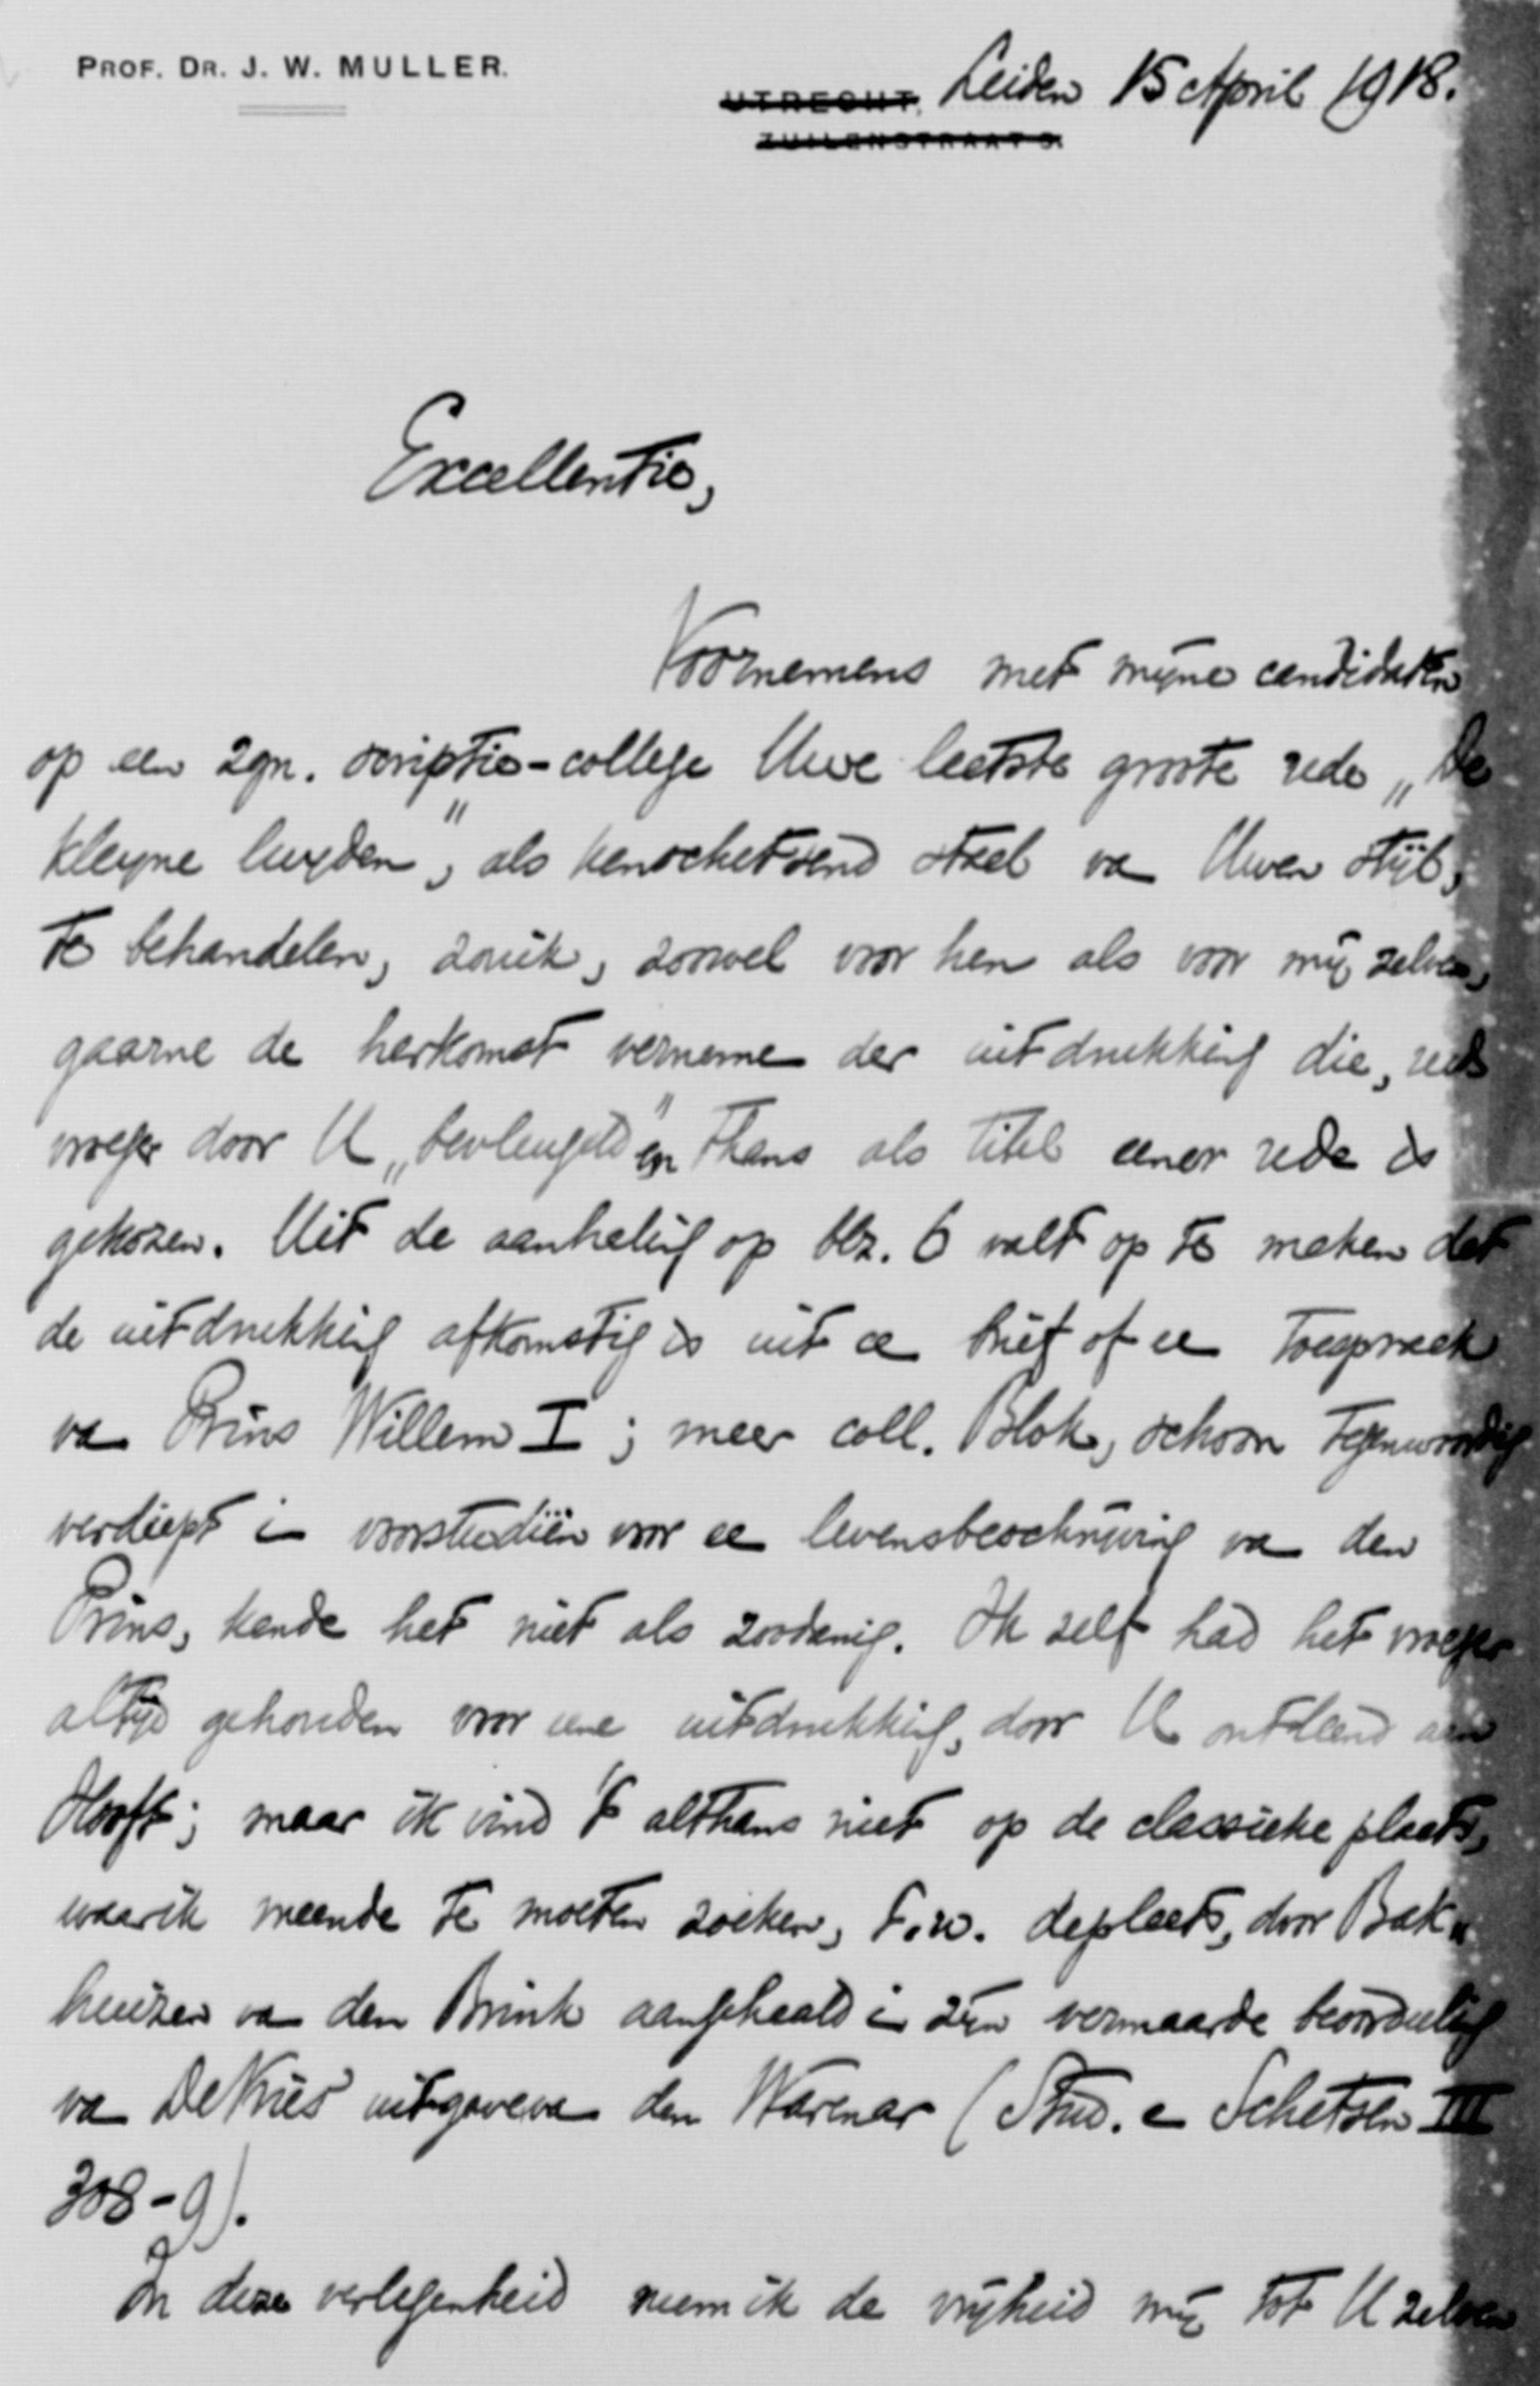 PROF. DR. J. W. MULLER.
UTRECHT, Leiden 15 April 1918.
ZUILENSTRAAT 3.
Excellentie,
Voornemens met mijne candidaten
op een zgn. scriptie-college Uwe laatste groote rede „De
kleyne luyden”, als kenschetsend staal va Uwen stijl,
te behandelen, zou ik, zoowel voor hen als voor mij zelven,
gaarne de herkomst vernemen der uitdrukking die, reeds
vroeger door U „bevleugeld” en thans als titel eener rede is
gekozen. Uit de aanhaling op blz. 6 valt op te maken dat
de uitdrukking afkomstig is uit ee brief of ee toespraak
va Prins Willem I; maar coll. Blok, schoon tegenwoordig
verdiept i voorstudiën voor ee levensbeschrijving va den
Prins, kende het niet als zoodanig. Ik zelf had het vroeger
altijd gehouden voor eene uitdrukking, door U ontleend aan
Hooft; maar ik vind 't althans niet op de classieke plaats,
waar ik meende te moeten zoeken, t.w. de plaats, door Bak„
huizen va den Brink aangehaald i zijn vermaarde beoordeeling
va De Vries' uitgave va den Warenar (Stud. e Schetsen III
308-9).
In deze verlegenheid neem ik de vrijheid mij tot U zelven